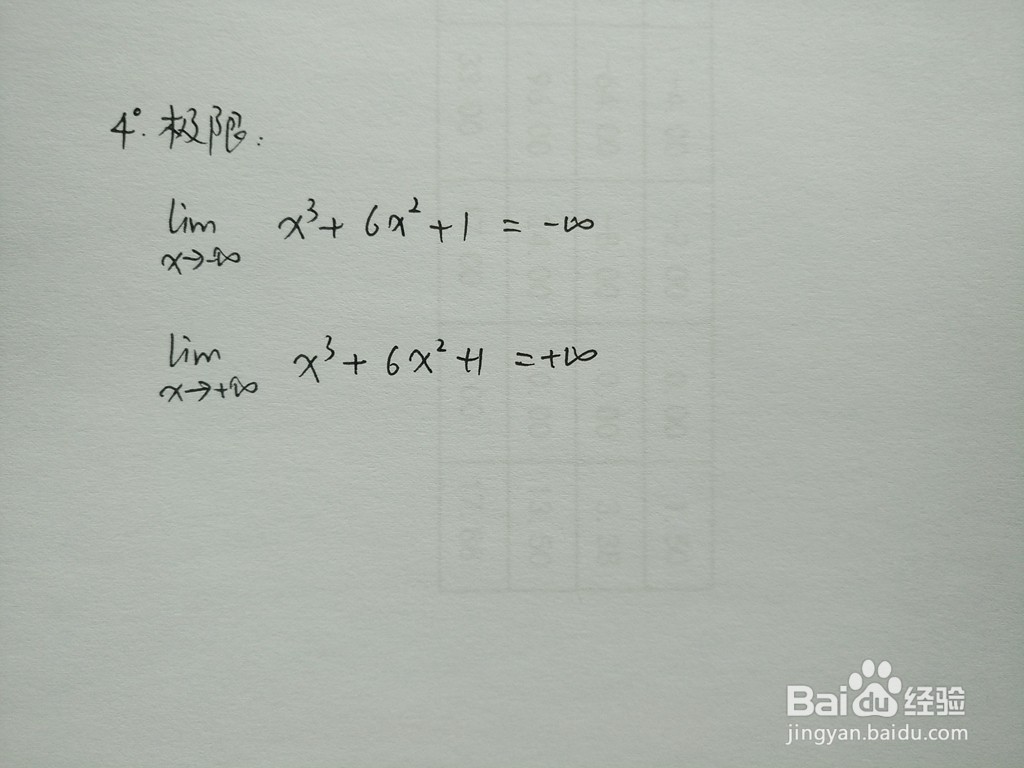 4°. 极限:
lim x³ + 6x² + 1 = -∞
x→-∞
lim x³ + 6x² + 1 = +∞
x→+∞
Baidu 经验
jingyan.baidu.com